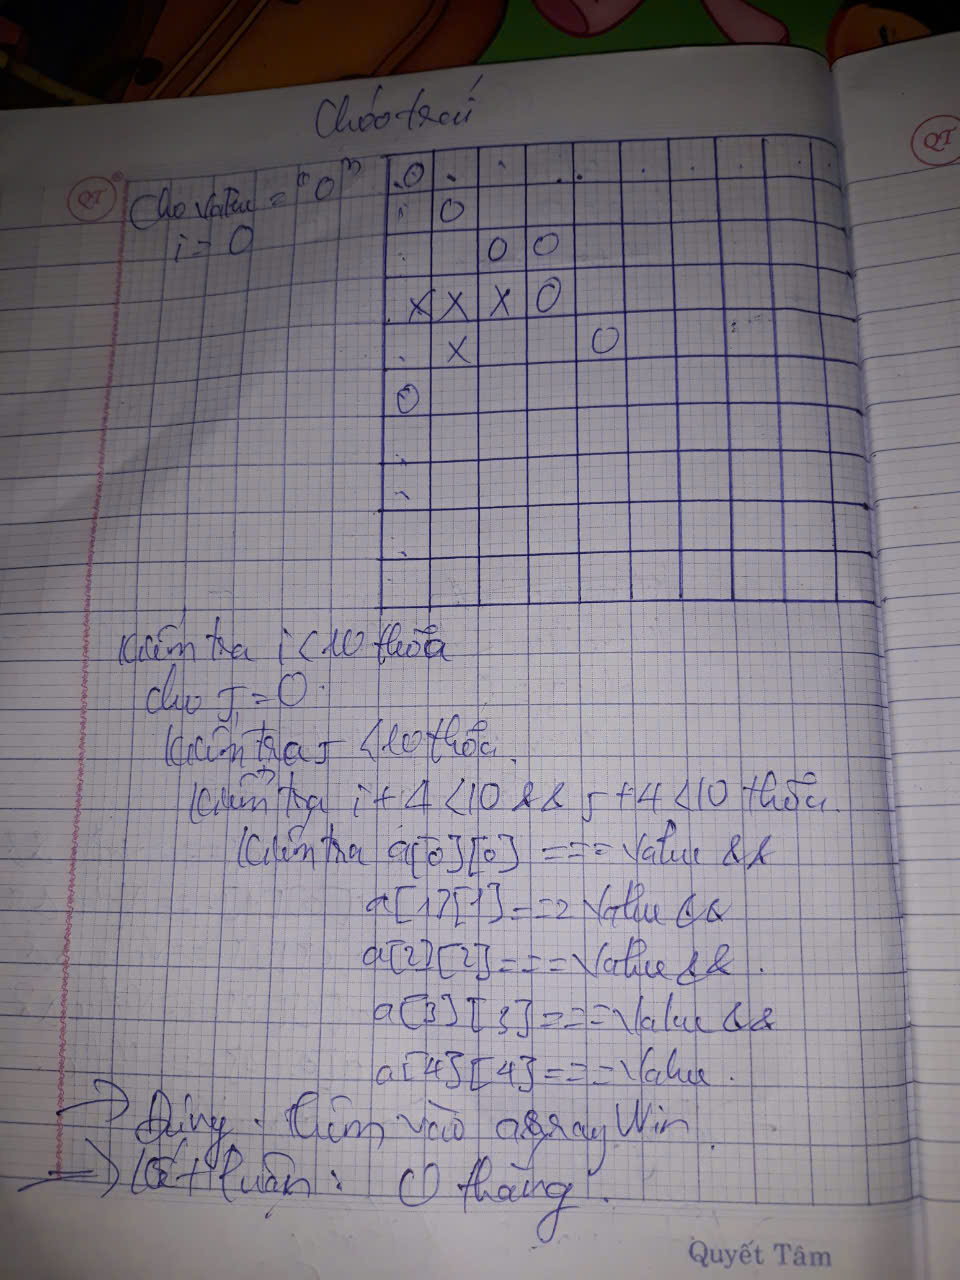 Chéo trái
QT
QT
Cho value = "O"
i = 0
O
O
O O
X X X O
X O
O
Kiểm tra i < 10 thỏa
cho j = 0.
Kiểm tra j < 10 thỏa.
Kiểm tra i + 4 < 10 && j + 4 < 10 thỏa.
Kiểm tra a[0][0] === value &&
a[1][1] === value &&
a[2][2] === value &&.
a[3][3] === value &&
a[4][4] === value.
→ Đúng. Thêm vào array Win.
⇒ Kết luận: O thắng.
Quyết Tâm